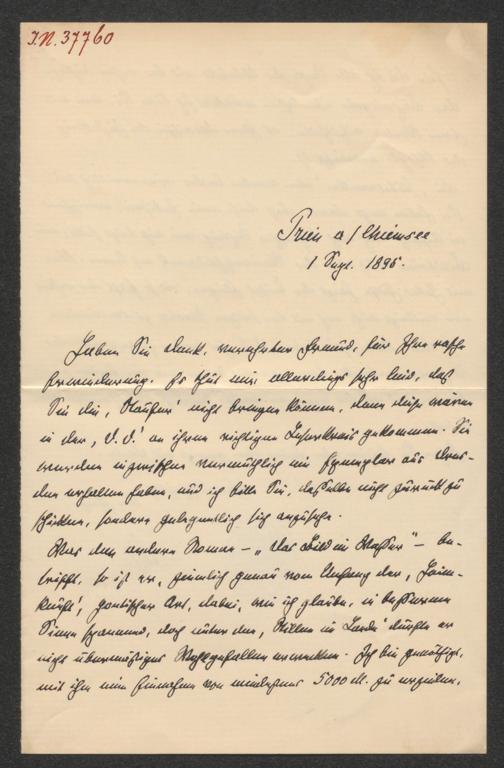 I.N. 37760
Prien a/Chiemsee
1 Sept. 1896.
Haben Sie Dank, verehrter Freund, für Ihre rasche
Erwiederung. Es thut mir allerdings sehr leid, daß
Sie die, nicht bringen können, denn dieser wären
in der, D. D.' an ihren richtigen Leserkreis gekommen. Sie
werden inzwischen vermuthlich ein Exemplar aus Dres-
den erhalten haben, und ich bitte Sie, dasselbe nicht zurück zu
schicken, sondern gelegentlich sich anzusehn.
Was den andern Roman – „Das Bild im Wasser" – be-
trifft, so ist er, ziemlich genau vom Umfang der,
, poetischer Art, dabei, wie ich glaube, in besserem
Sinne spannend, doch unter den, Stillen im Lande' dürfte er
nicht übermäßiges Wohlgefallen erwecken. Ich bin genöthigt,
mit ihm eine Einnahme von mindestens 5000 M. zu erzielen,